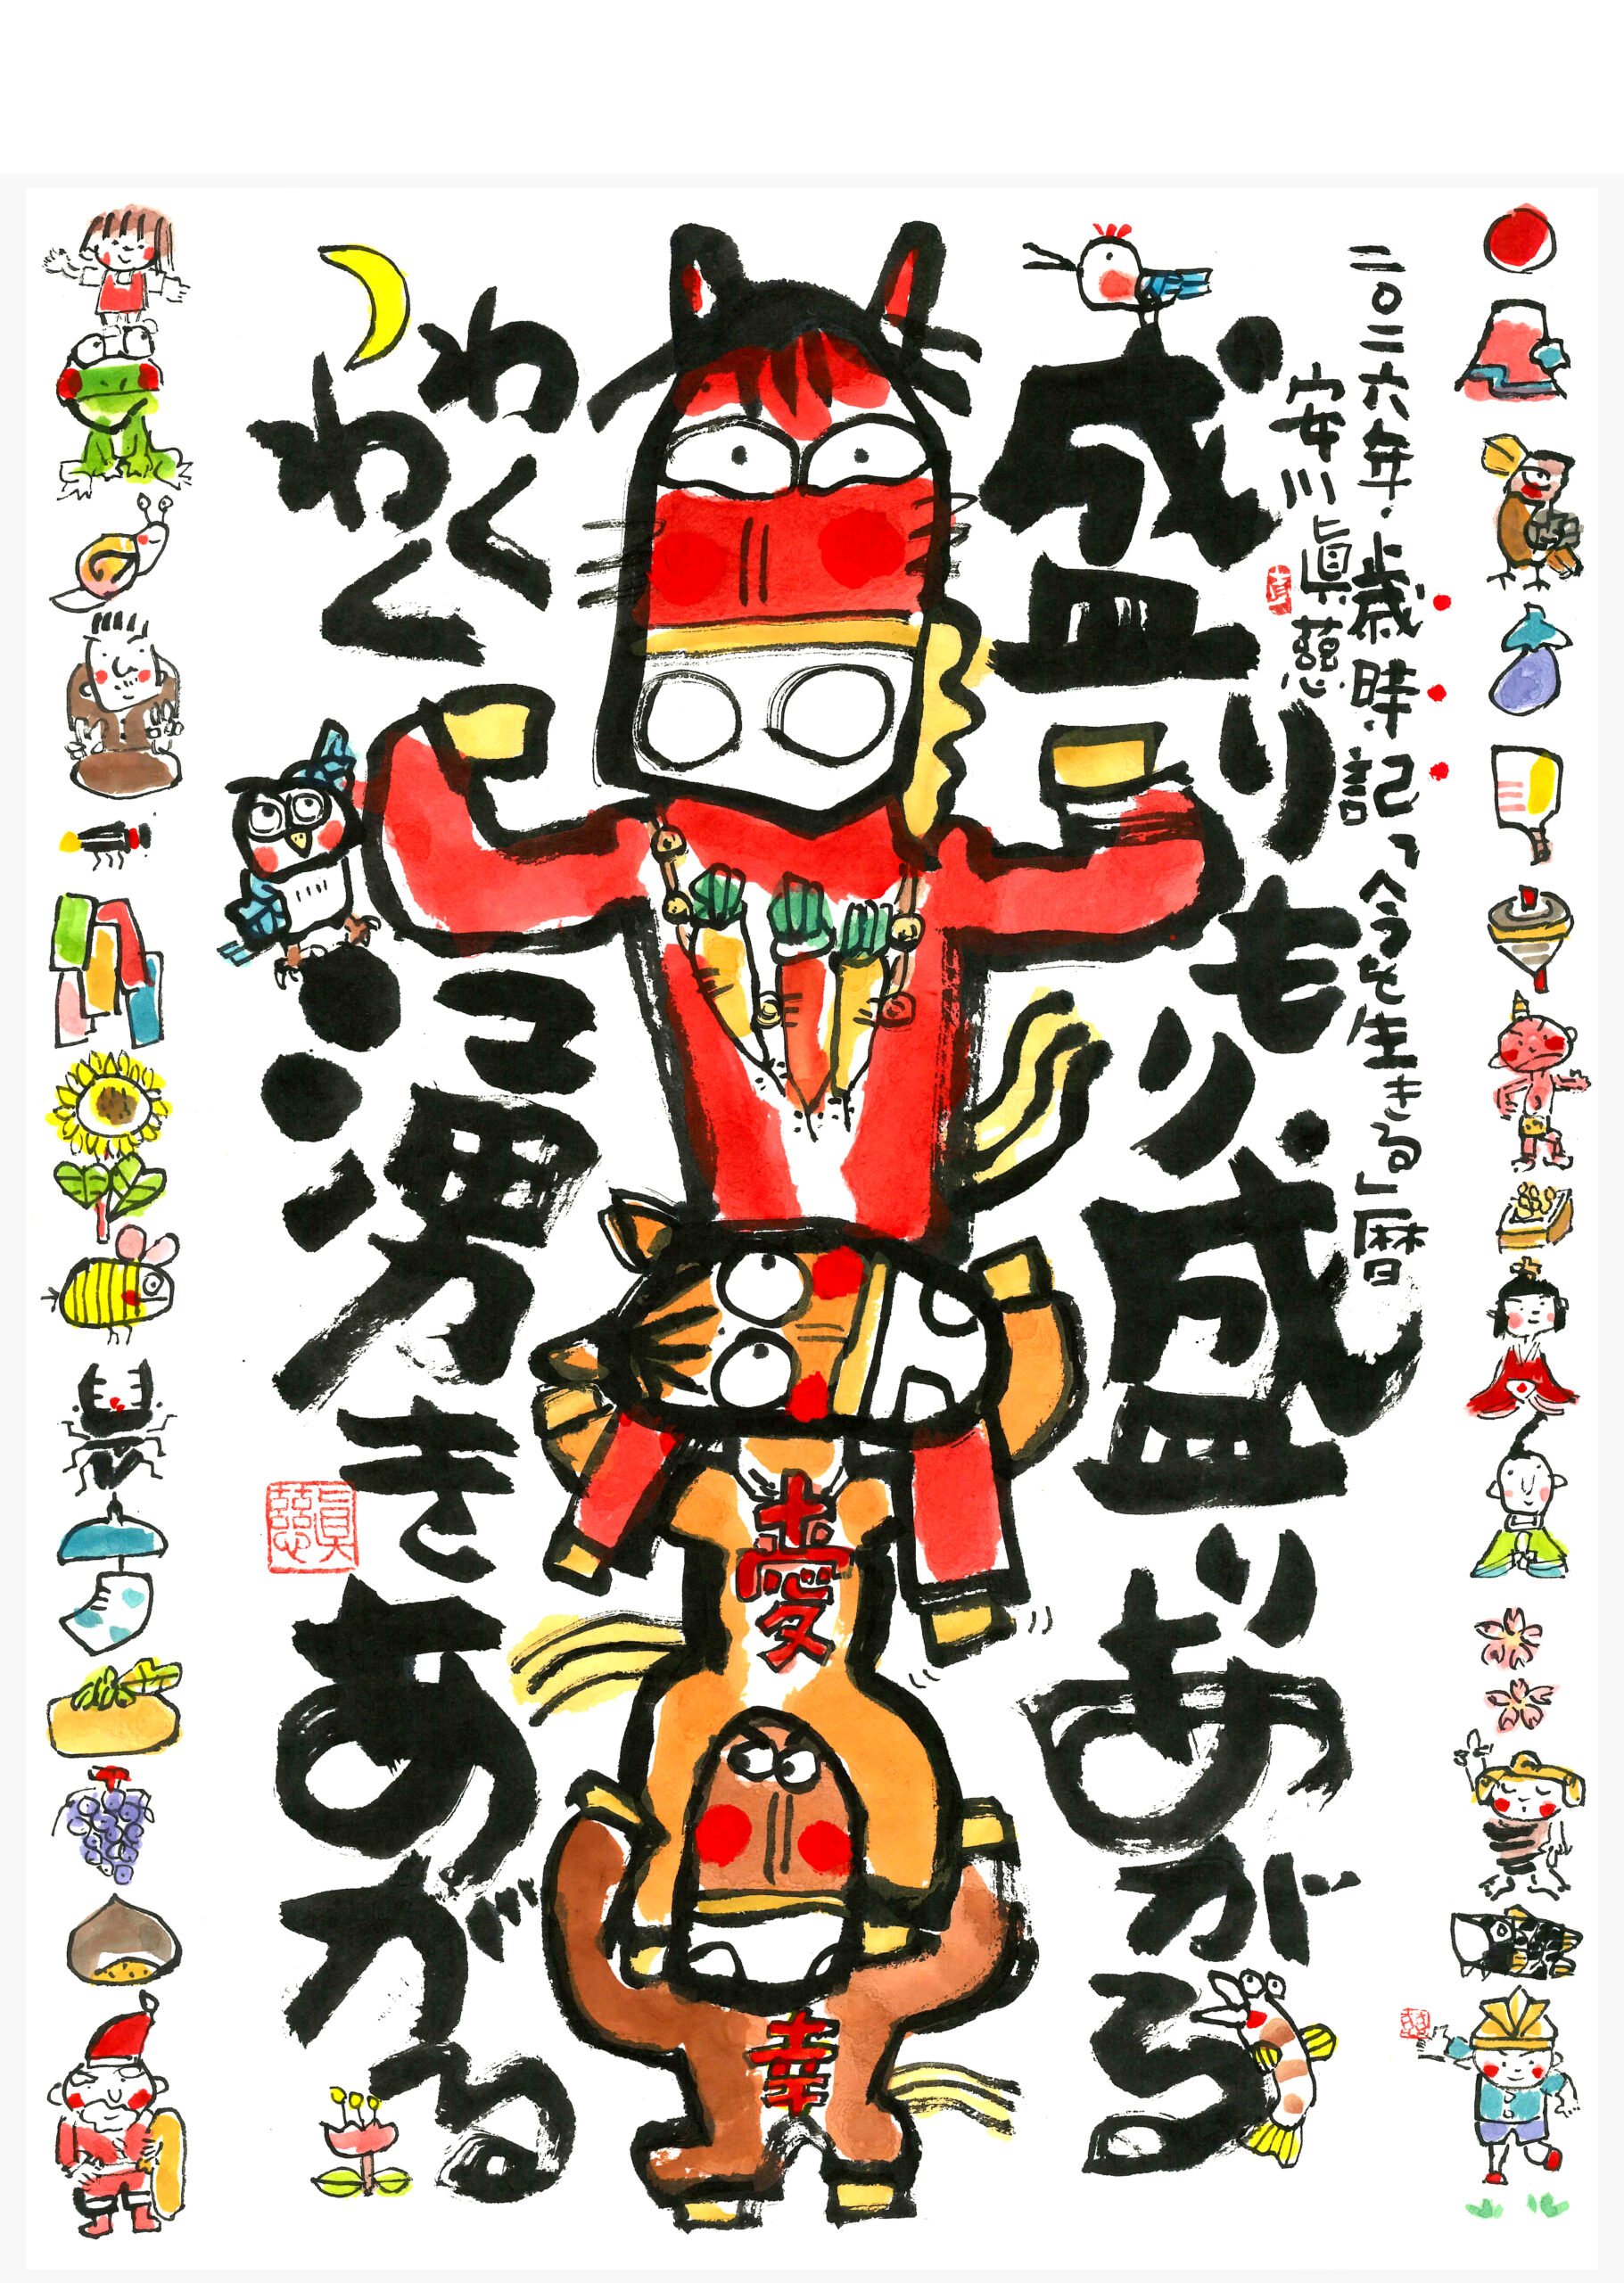 二〇二六年・歳時記「今を生きる」暦
安川眞慈
眞
盛りもり盛りあがる
わく
わく
湧きあがる
愛
幸
眞慈